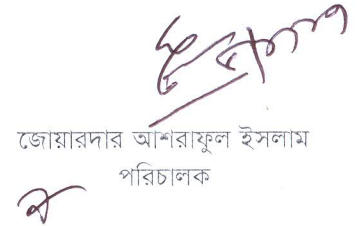 জোয়ারদার আশরাফুল ইসলাম
পরিচালক